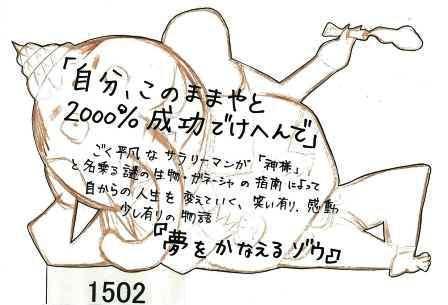 「自分、このままやと
2000%成功でけへんで」
ごく平凡なサラリーマンが「神様」
と名乗る謎の生物・ガネーシャの指南によって
自からの人生を変えていく、笑い有り、感動
少し有りの物語
『夢をかなえるゾウ』
1502